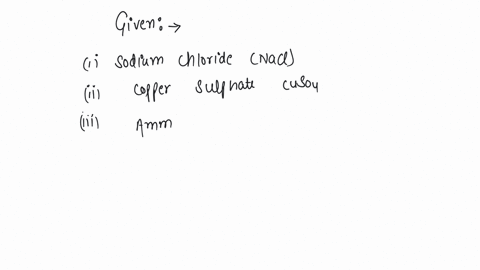 Given:→
(i) Sodium Chloride (NaCl)
(ii) Copper Sulphate CuSO4
(iii) Amm